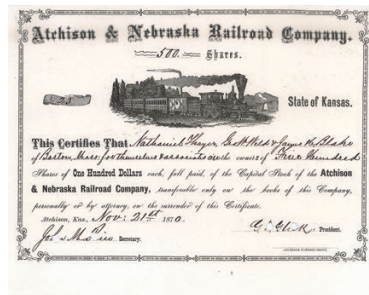 Atchison & Nebraska Railroad Company.
500 Shares.
State of Kansas.
This Certifies That Nathaniel Thayer, Geo W Weld & James H. Blake
of Boston Mass: for themselves & associates are the owners of Five Hundred
Shares of One Hundred Dollars each, full paid, of the Capital Stock of the Atchison
& Nebraska Railroad Company, transferable only on the books of this Company,
personally or by attorney, on the surrender of this Certificate.
Atchison, Kan., Nov: 21st 1870.
Secretary.
President.